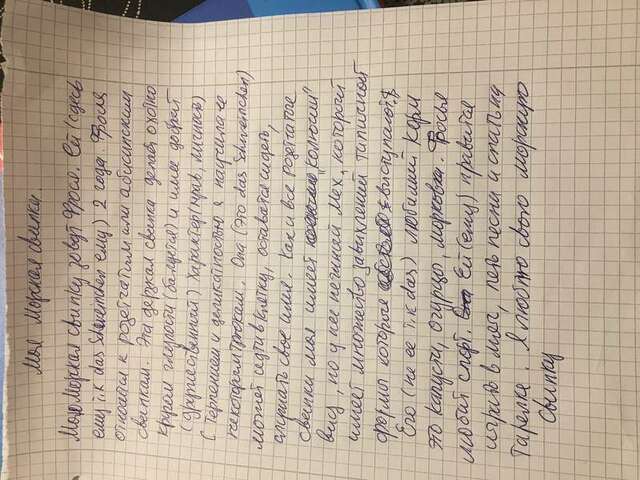 Моя Морская свинка.
Мою морская свинку зовут Фрося. Ей (сдесь
ему т.к das Schweinchen ему) 2 года. Фрося
относится к розетчатым или абиссинским
свинкам. Эта дерзкая свинка делает охотно
кругом глупости (балуется) и имее добрый
(дружественный) характер (нрав, личность)
С терпением и деликатностью я научила ее
некоторым трюкам. Она (это das Schweinchen)
может идти в клетку, оставатся сидеть,
слушать свое имя. Как и все розетчатые
свинки моя имеет "колючий"
вид, но у нее нежный мех, который
имеет множество завихлений типичной
формы которые выступают.
Его (не ее т.к das) любимый корм
это капуста, огурцы, морковка. Фросья
любит спорт. Ей (ему) нравится
играть в мяч, петь песни и спать на
тарелке. Я люблю свою морскую
свинку